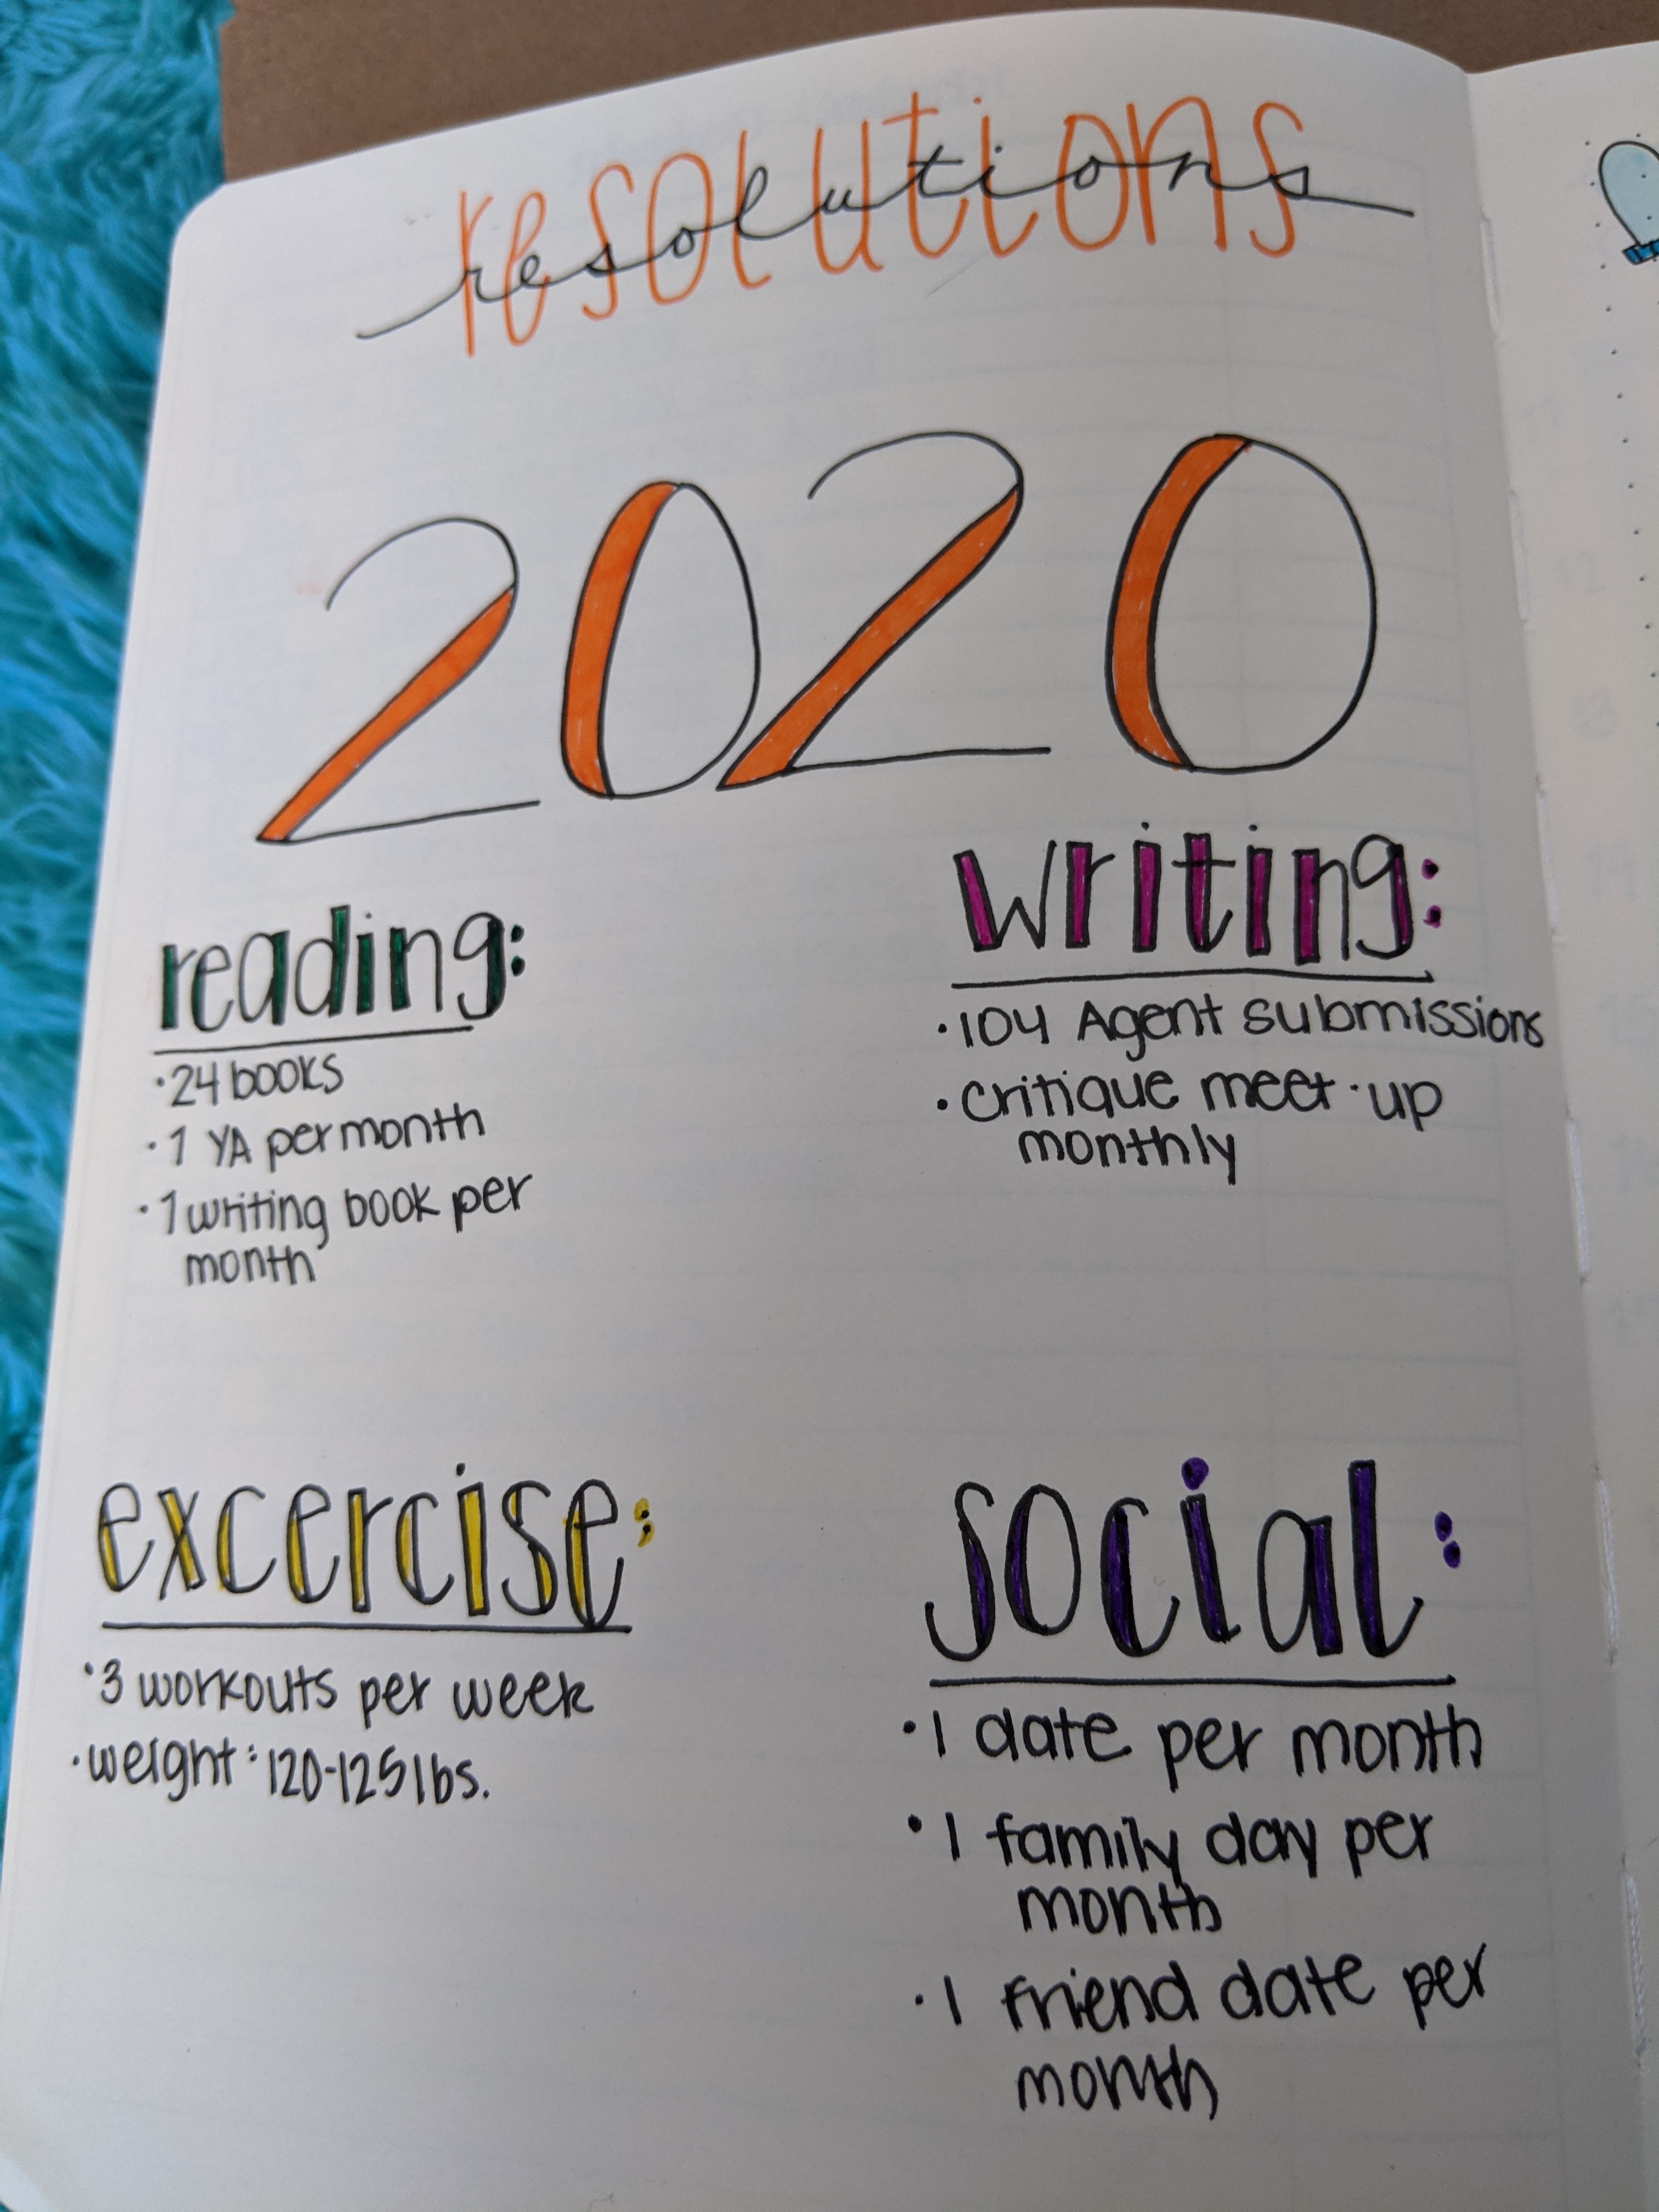 resolutions
2020
reading:
·24 books
·1 YA per month
·1 writing book per
month
writing:
·104 Agent submissions
·critique meet-up
monthly
excercise:
·3 workouts per week
·weight: 120-125 lbs.
social:
·1 date per month
·1 family day per
month
·1 friend date per
month